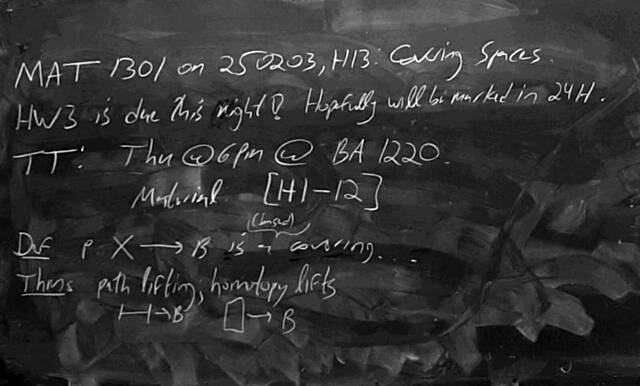 MAT 1301 on 250203, H13: Covering Spaces.
HW3 is due this night! Hopefully will be marked in 24H.
TT: Thu @ 6pm @ BA 1220.
Material [H1-12]
(based)
Def p X → B is a covering....
Thms path lifting, homotopy lifts
→ B → B